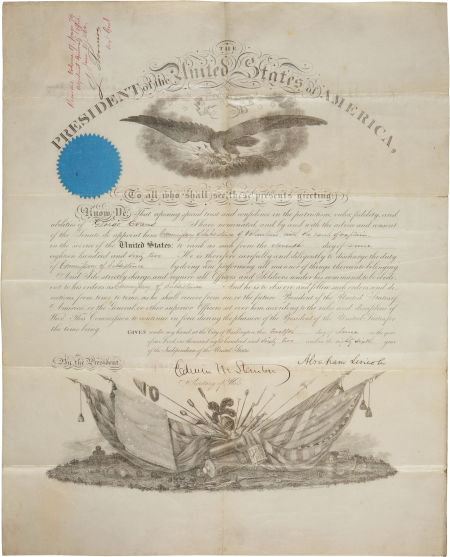 THE
PRESIDENT of the United States of AMERICA,
To all who shall see these presents greeting:
Know Ye, That reposing special trust and confidence in the patriotism, valor, fidelity, and
abilities of I have nominated, and by and with the advice and consent
of the Senate, do appoint him Commissary of Subsistence of Volunteers with the rank of Captain
in the service of the United States: to rank as such from the day of June
eighteen hundred and sixty two. He is therefore carefully and diligently to discharge the duty
of Commissary of Subsistence by doing and performing all manner of things thereunto belonging.
And I do strictly charge and require all Officers and Soldiers under his command to be obedi-
ent to his orders as Commissary of Subsistence. And he is to observe and follow such orders and di-
rections from time to time, as he shall receive from me, or the future President of the United States of
America, or the General or other superior Officers set over him, according to the rules and discipline of
War. This Commission to continue in force during the pleasure of the President of the United States, for
the time being.
GIVEN under my hand at the City of Washington, this day of June in the year
of our Lord one thousand eight hundred and sixty two and in the eighty sixth year
of the Independence of the United States.
By the President,
Abraham Lincoln
Edwin M. Stanton
Secretary of War.